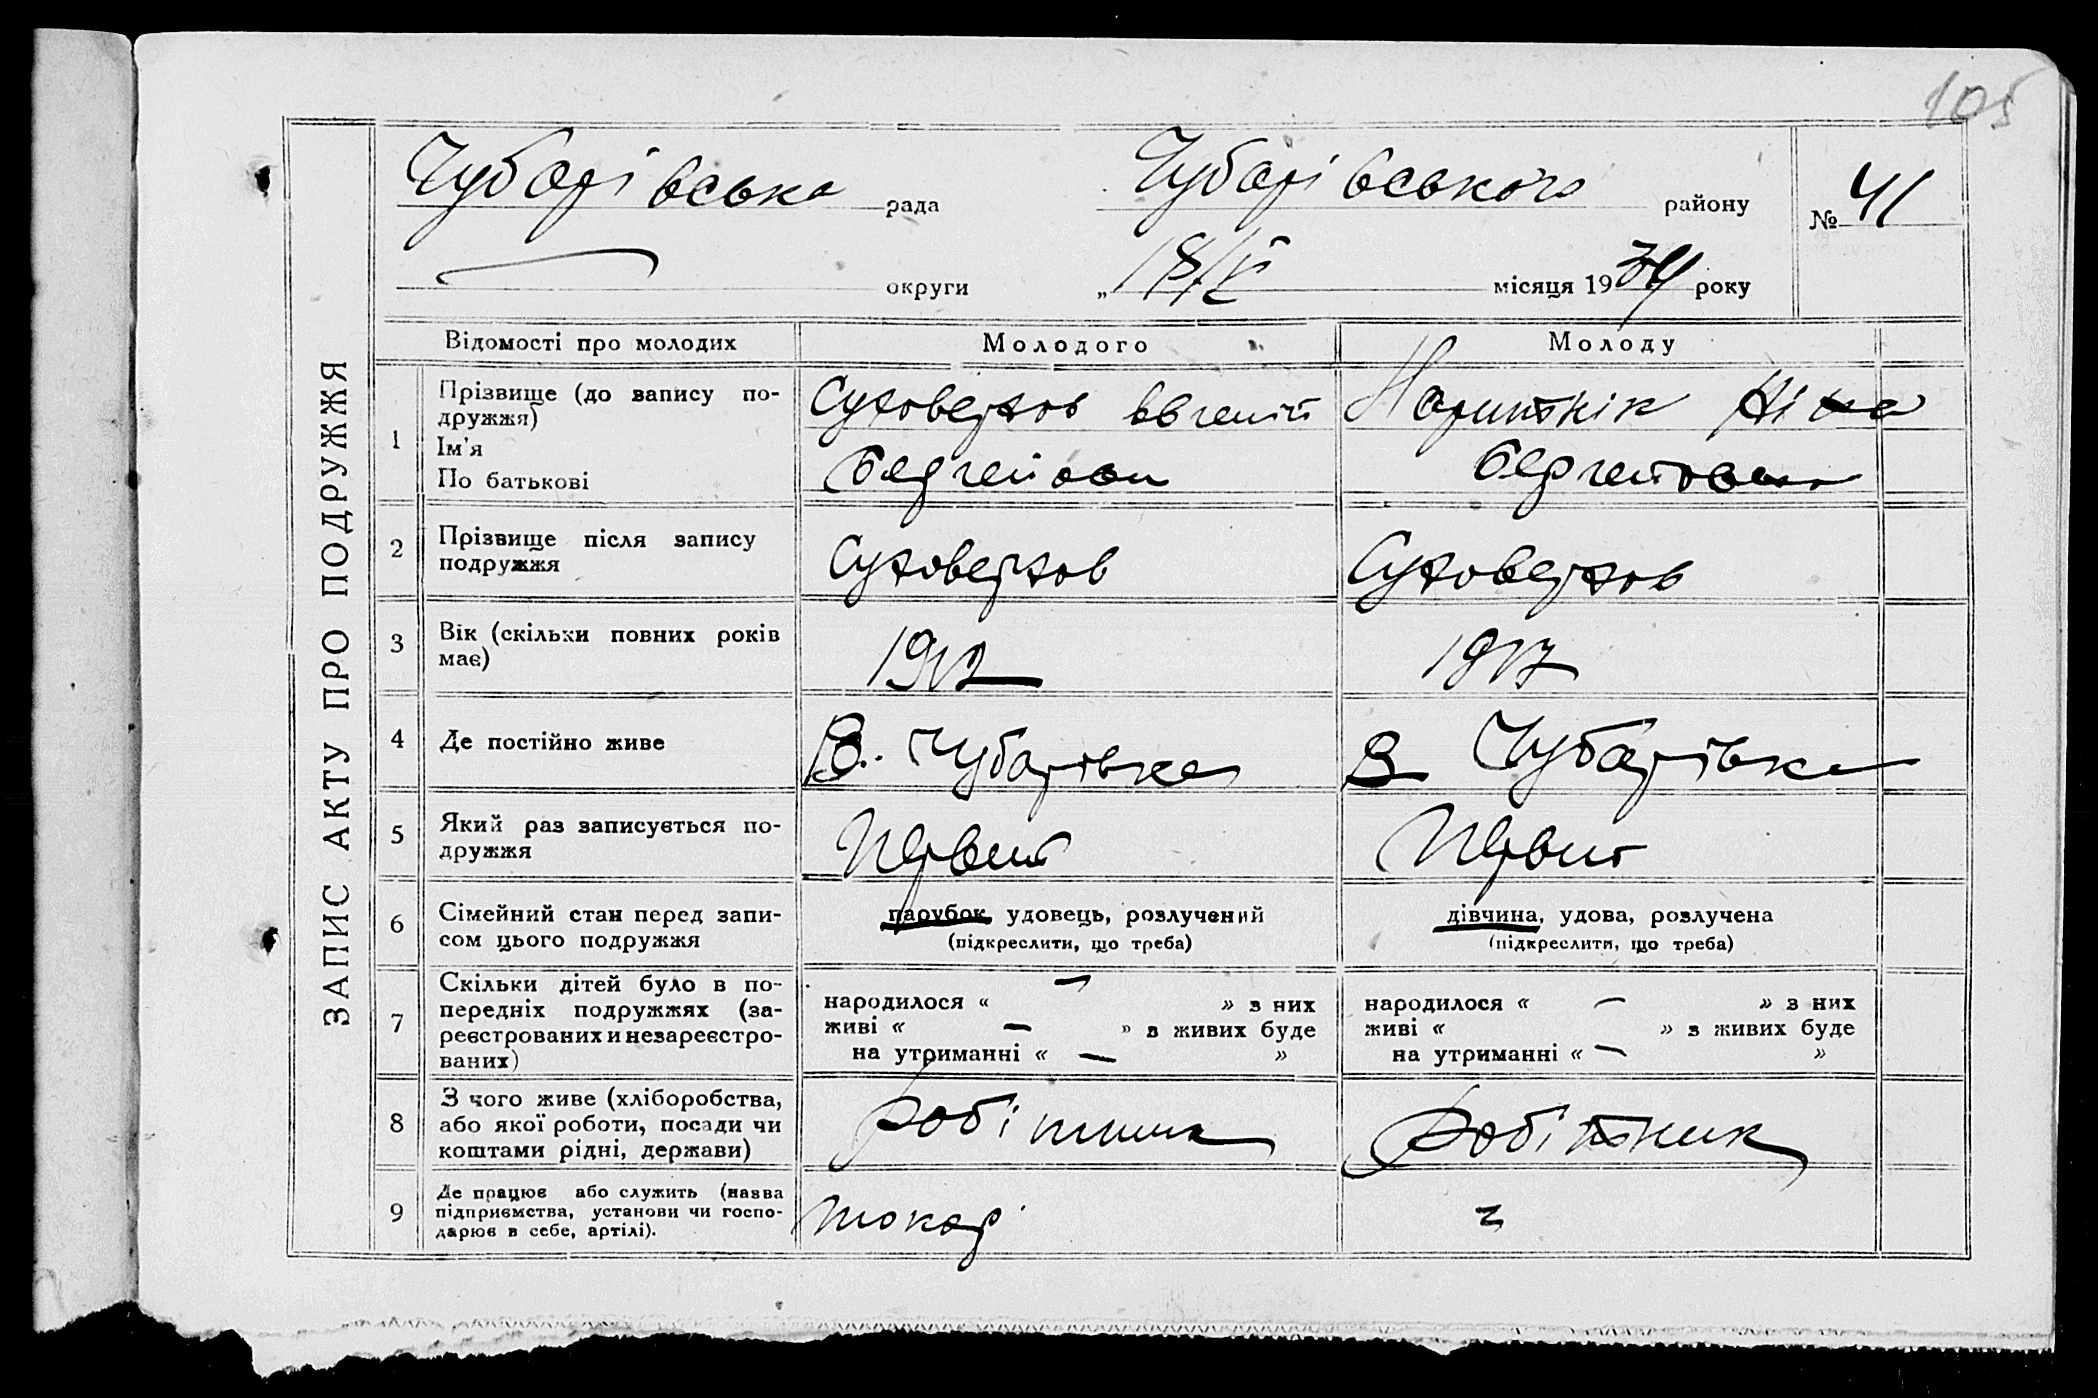 105
ЗАПИС АКТУ ПРО ПОДРУЖЖЯ
Чубарівська рада Чубарівського району № 41
округи „ 18/VI місяця 1934 року
Відомості про молодих Молодого Молоду
1 Прізвище (до запису по-
дружжя)
Ім'я
По батькові
Суховерхов Євгеній
Сергейови
Ніна
Сергейовна
2 Прізвище після запису
подружжя
Суховерхов Суховерхов
3 Вік (скільки повних років
має)
1912 1917
4 Де постійно живе В. Чубарівка В Чубарівка
5 Який раз записується по-
дружжя
Первий Первий
6 Сімейний стан перед запи-
сом цього подружжя
парубок, удовець, розлучений
(підкреслити, що треба)
дівчина, удова, розлучена
(підкреслити, що треба)
7 Скільки дітей було в по-
передніх подружжях (за-
реєстрованих и незареєстро-
ваних)
народилося « — » з них
живі « — » з живих буде
на утриманні « — »
народилося « — » з них
живі « » з живих буде
на утриманні « — »
8 З чого живе (хліборобства,
або якої роботи, посади чи
коштами рідні, держави)
робітник робітник
9 Де працює або служить (назва
підприємства, установи чи госпо-
дарює в себе, артілі).
токар